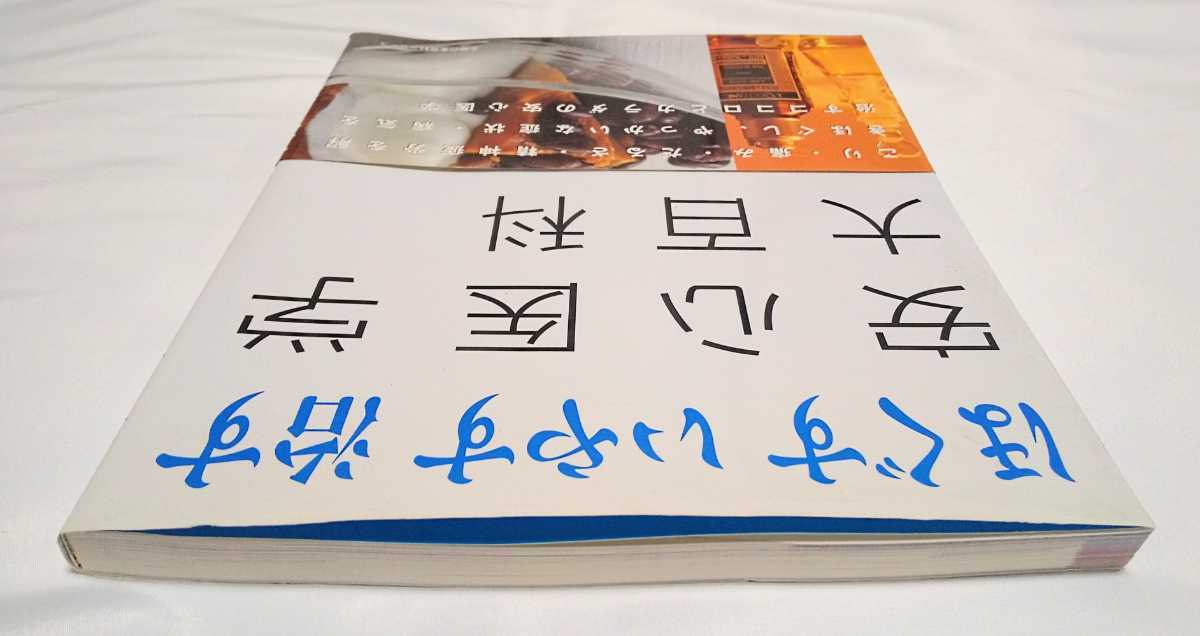 ほぐす いやす 治す
安心医学
大百科
こり・痛み・だるさ・精神疲労を解
きほぐし、やっかいな症状・病気を
治すココロとカラダの安心医学